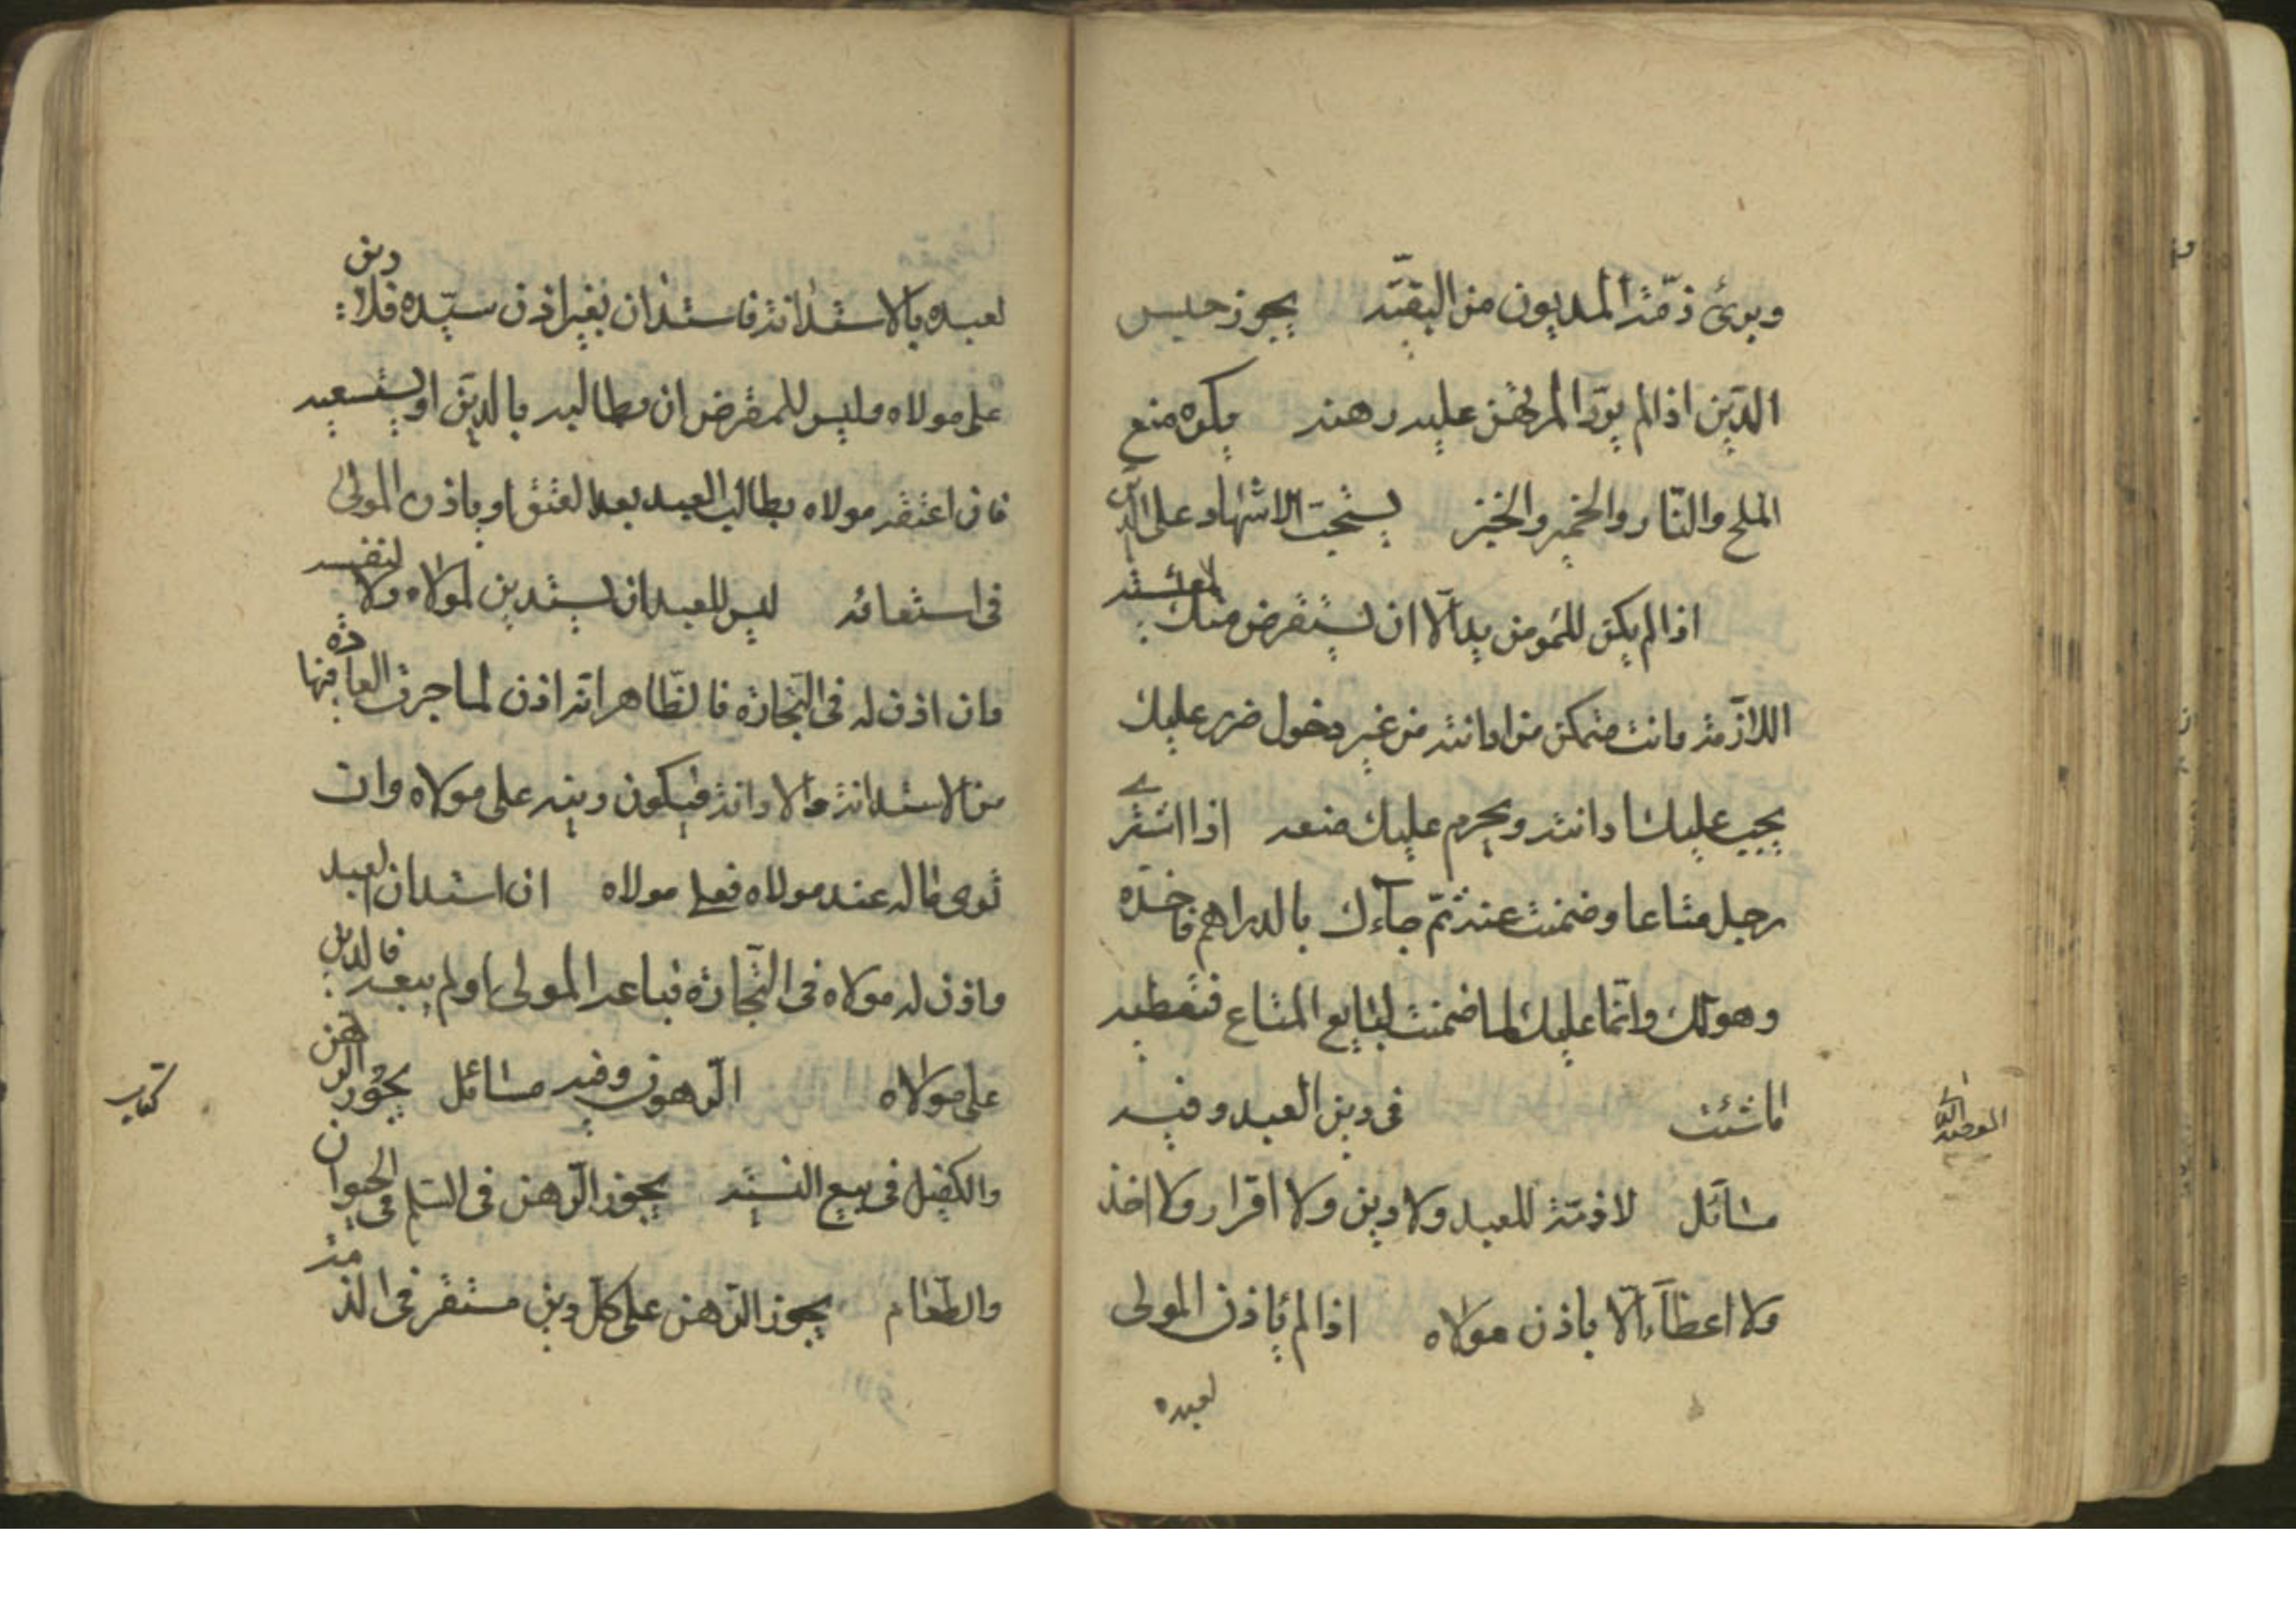 وبرئ ذمّة المديون من البقيّة يجوز حبس
الدّين اذا لم يودّ المرتهن عليه رهنه يكره منع
الملح والنّار والخمير والخبز يستحبّ الاشهاد على الدّين
اذا لم يكن للمؤمن بدّ الّا ان يستقرض منك لمعيشته
اللازمة وانت متمكن من ادانته من غير دخول ضرر عليك
يجب عليك ادانته ويحرم عليك منعه اذا اشترى
رجل متاعا وضمنت عنه ثمّ جاءك بالدراهم فاخذه
وهو لك وانّما عليك لما ضمنت لبايع المتاع فتعطيه
ما شئت في دين العبد وفيه
مسائل لا ذمّة للعبد ولا دين ولا اقرار ولا اخذ
ولا اعطاء الّا باذن مولاه اذا لم ياذن المولى
لعبده
لعبده بالاستدانة فاستدان بغير اذن سيّده فلا دين
على مولاه وليس للمقرض ان يطالبه بالدين او يستسعيه
فان اعتقه مولاه يطالب العبد بعد العتق او باذن المولى
في استسعائه ليس للعبد ان يستدين لمولاه ولا لنفسه
وان اذن له في التّجارة فالظّاهر انّه اذن لما جرت العادة فيها
من الاستدانة والادانة فيكون دينه على مولاه وان
توى ماله عند مولاه فعلى مولاه ان استدان العبد
واذن له مولاه في التّجارة فباعه المولى او لم يبعه فالدين
على مولاه الرّهون وفيه مسائل يجوز الرهن
والكفيل في بيع النسيئة يجوز الرّهن في السّلم في الحيوان
والطّعام يجوز الرّهن على كلّ دين مستقر في الذمة
كتاب